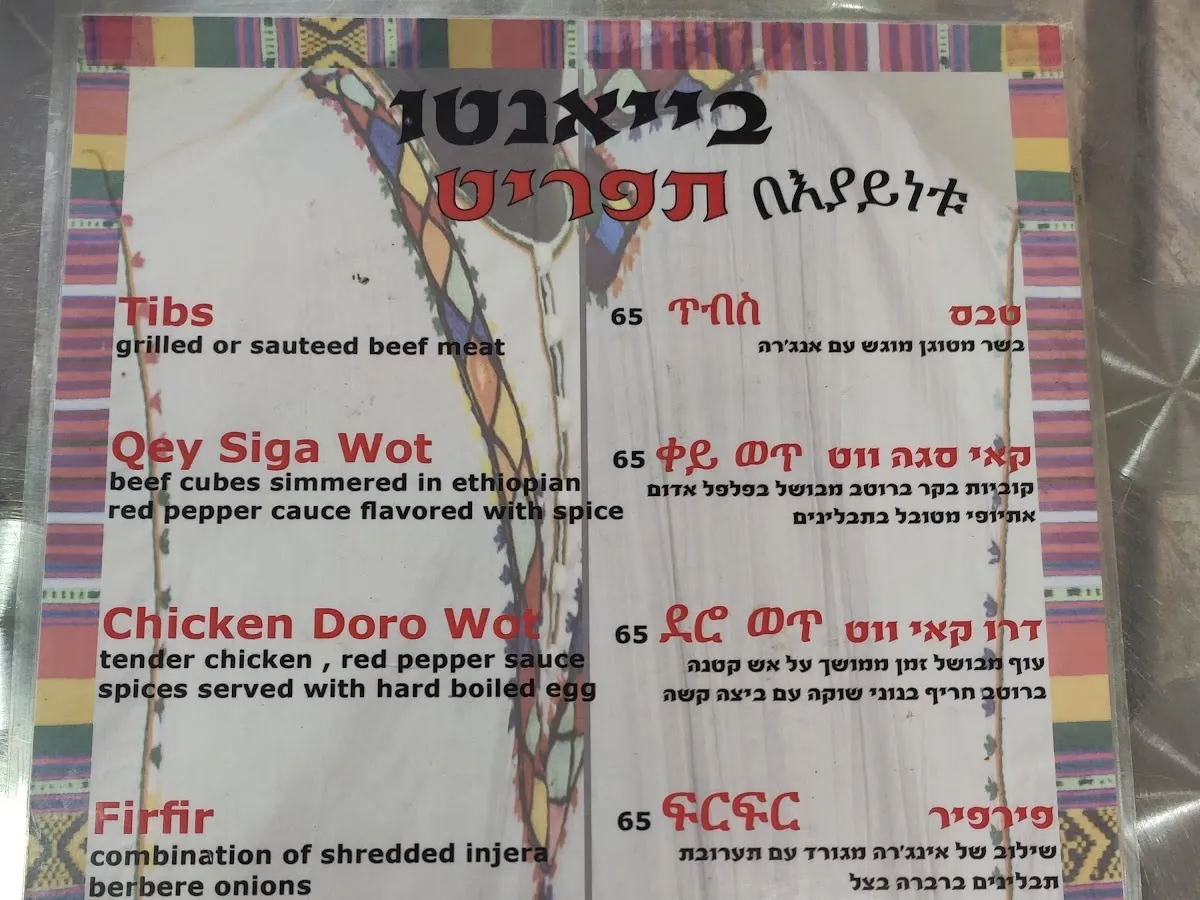 בייאנטו
תפריט በእያይነቱ
Tibs
grilled or sauteed beef meat
65 ጥብስ טבס
בשר מטוגן מוגש עם אנג'רה
Qey Siga Wot
beef cubes simmered in ethiopian
red pepper cauce flavored with spice
65 ቀይ ወጥ קאי סגה ווט
קוביות בקר ברוטב מבושל בפלפל אדום
אתיופי מטובל בתבלינים
Chicken Doro Wot
tender chicken , red pepper sauce
spices served with hard boiled egg
65 ደሮ ወጥ דרו קאי ווט
עוף מבושל זמן ממושך על אש קטנה
ברוטב חריף בנוני שוקה עם ביצה קשה
Firfir
combination of shredded injera
berbere onions
65 ፍርፍር פירפיר
שילוב של אינג'רה מגורד עם תערובת
תבלינים ברברה בצל